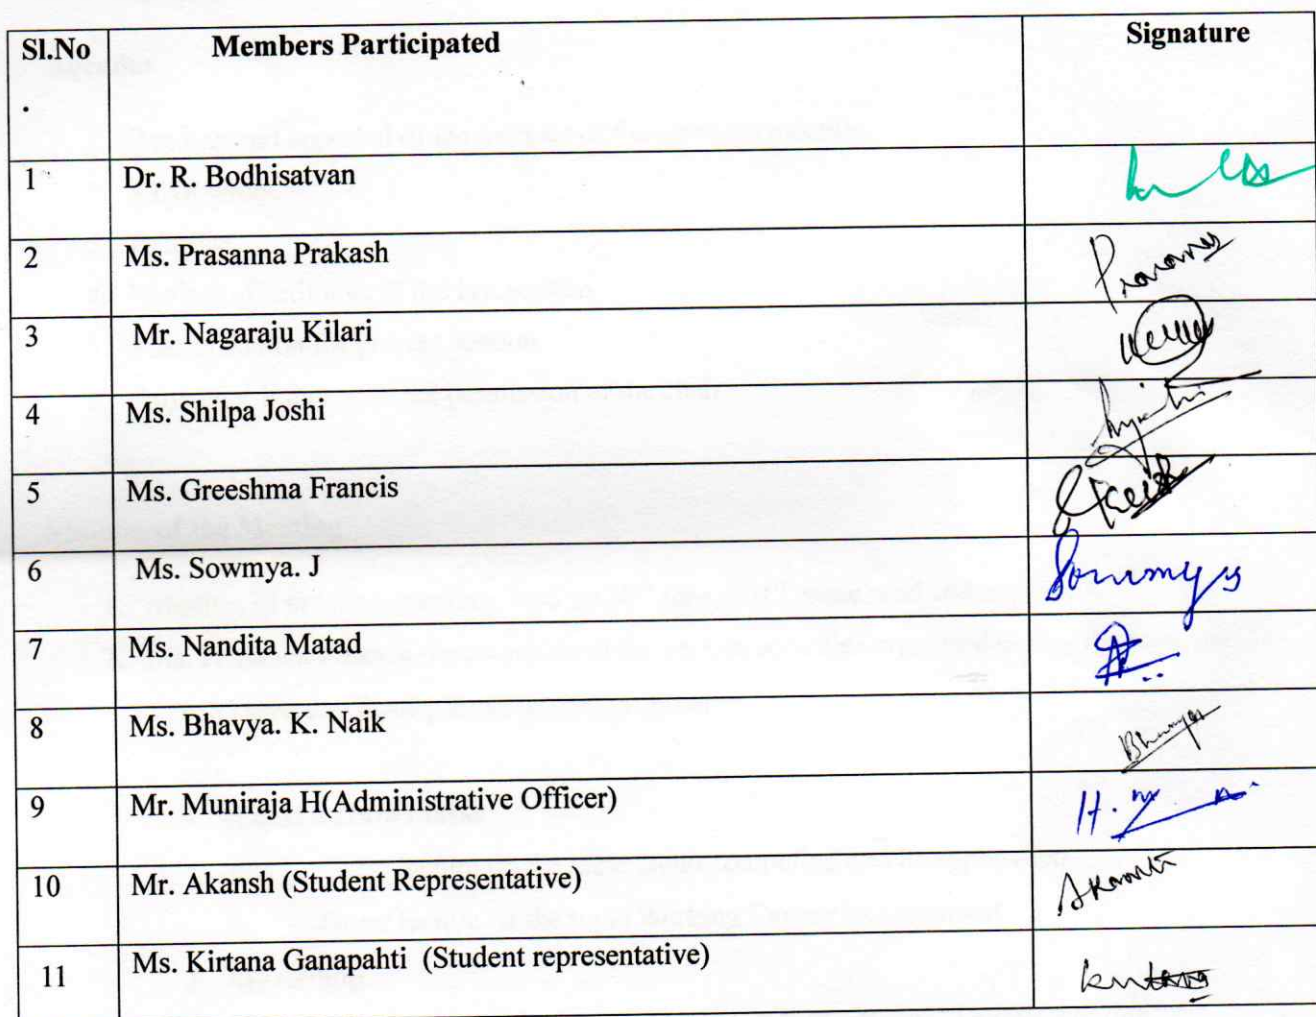 Sl.No Members Participated Signature
.
1 Dr. R. Bodhisatvan
2 Ms. Prasanna Prakash Prasanna
3 Mr. Nagaraju Kilari
4 Ms. Shilpa Joshi
5 Ms. Greeshma Francis
6 Ms. Sowmya. J Sowmya
7 Ms. Nandita Matad
8 Ms. Bhavya. K. Naik Bhavya
9 Mr. Muniraja H(Administrative Officer)
10 Mr. Akansh (Student Representative) Akansh
11 Ms. Kirtana Ganapahti (Student representative) Kirtana